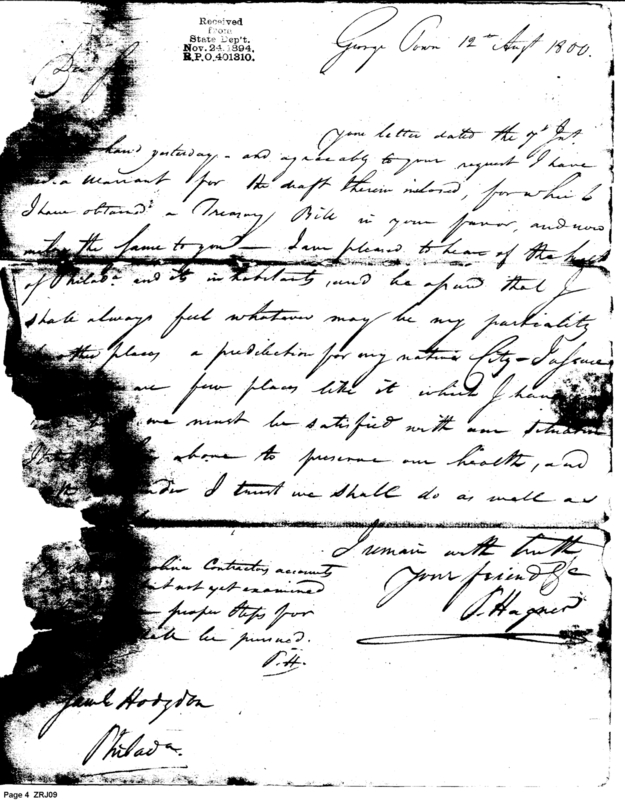 Received
from
State Dep't.
Nov. 24. 1894.
R.P.O. 401310.
George Town 12th Augt 1800.
Dear
your letter dated the 9t Inst
hand yesterday - and agreeably to your request I have
a warrant for the draft therein inclosed, for which
I have obtained a Treasury Bill in your favor, and now
the same to you - I am pleased to hear of the
of Philada and its inhabitants, and be assured that I
shall always feel whatever may be my partiality
other places a predilection for my native City - I assure
are few places like it which I have
we must be satisfied with our situation
above to preserve our health, and
I trust we shall do as well as
I remain with truth
your friend &c
P. Hagner
Contractors accounts
but not yet examined
proper steps for
be pursued.
P.H.
Saml Hodgdon
Philada.
Page 4 ZRJ09